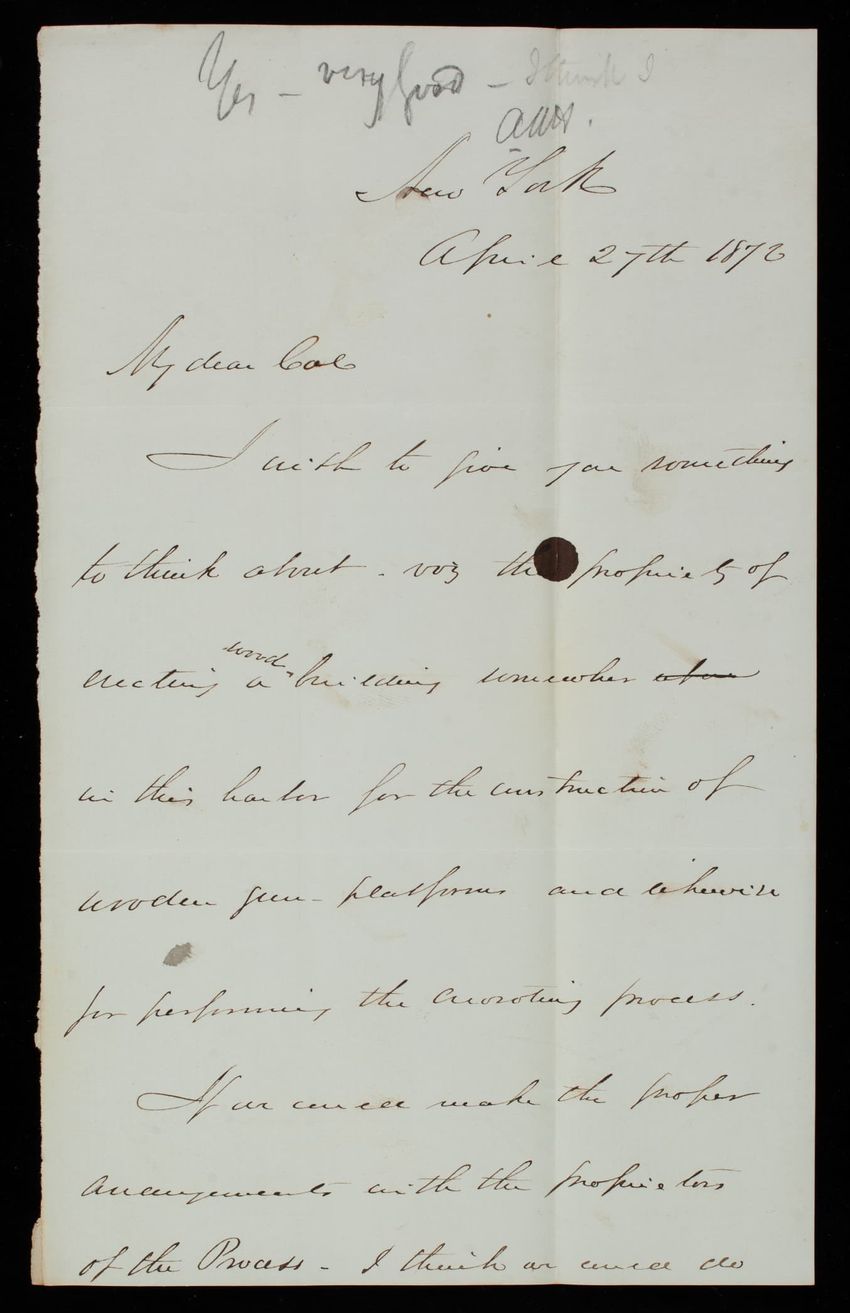 Yes - very good - I think I
New York
April 27th 1872
My dear Col
I wish to give you something
to think about - viz the propriety of
erecting a wood building somewher
in this harbor for the construction of
wooden gun-platforms and likewise
for performing the creosoting process.
If we could make the proper
arrangements with the proprietors
of the Process - I think we could do